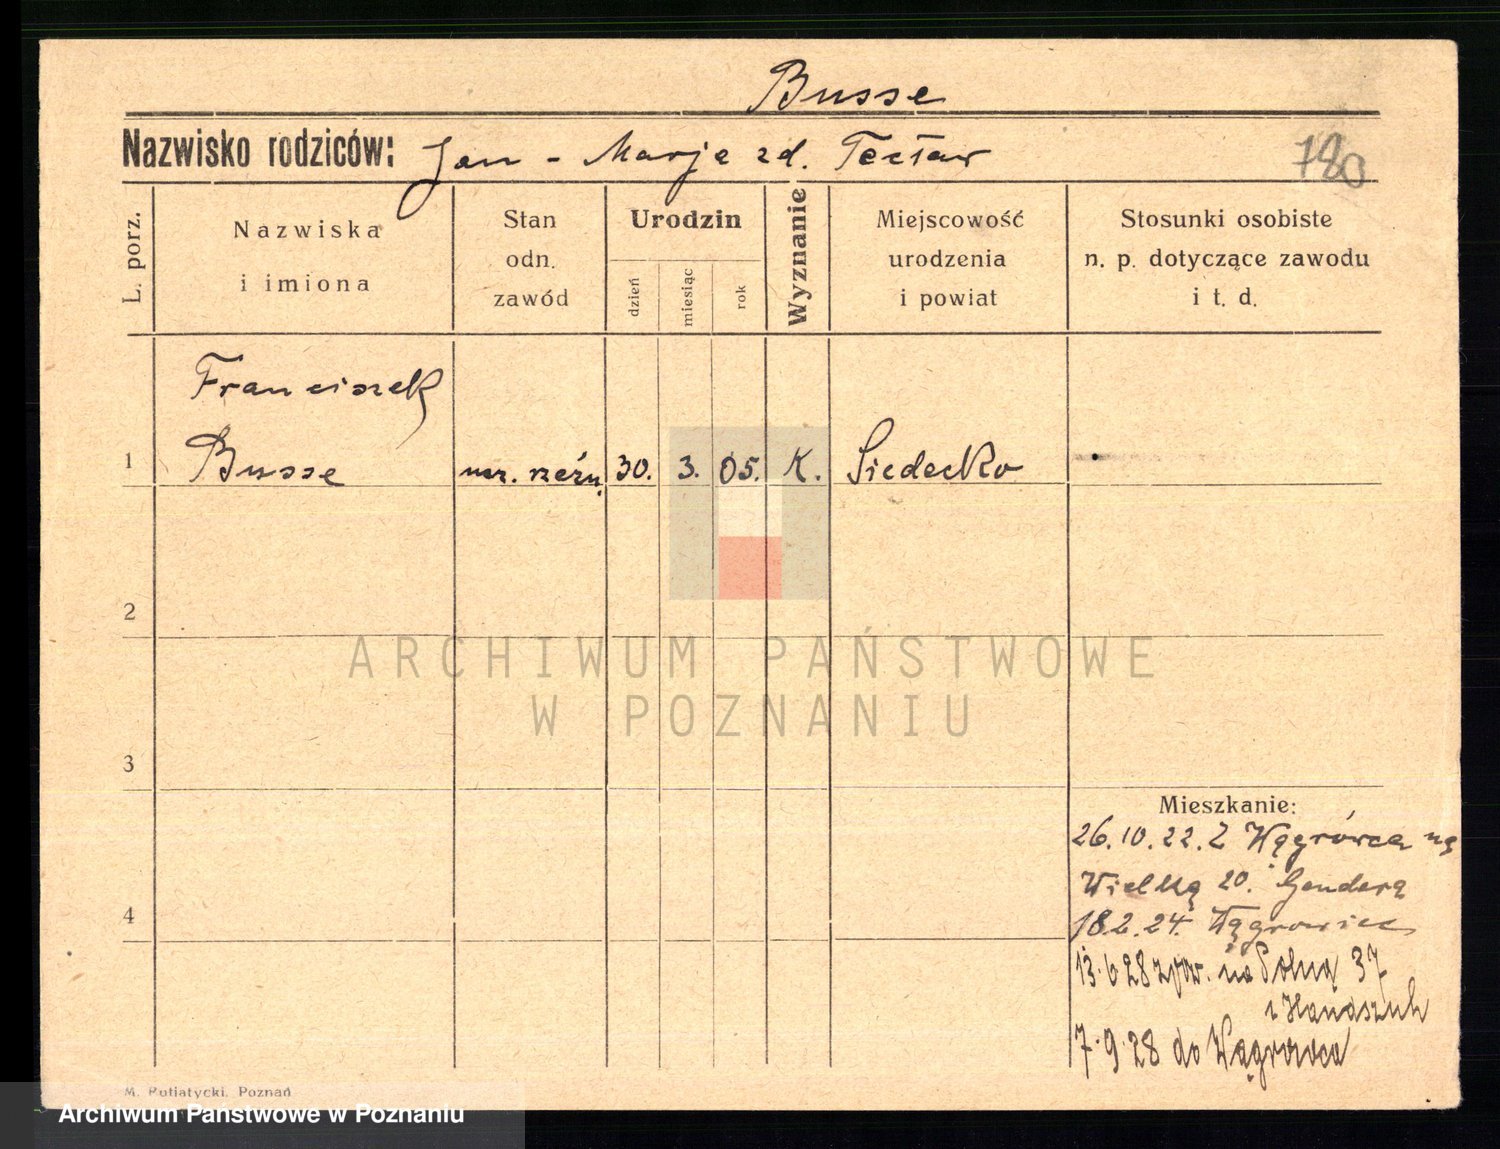 Busse
Nazwisko rodziców: Jan - Marja zd. Tecław
180
L. porz.
Nazwiska
i imiona
Stan
odn.
zawód
Urodzin
dzień
miesiąc
rok
Wyznanie
Miejscowość
urodzenia
i powiat
Stosunki osobiste
n. p. dotyczące zawodu
i t. d.
Franciszek
1 Busse ucz. rzeźn. 30. 3. 05. K. Siedecko
2
3
4
ARCHIWUM PAŃSTWOWE
W POZNANIU
Mieszkanie:
26.10.22. Z Wągrówca na
Wielką 20. Gendera
18.2.24. Wągrowiec
13.6.28 zpow. na Polną 37
Handszuh
7.9.28 do Wągrowca
M. Putiatycki, Poznań
Archiwum Państwowe w Poznaniu